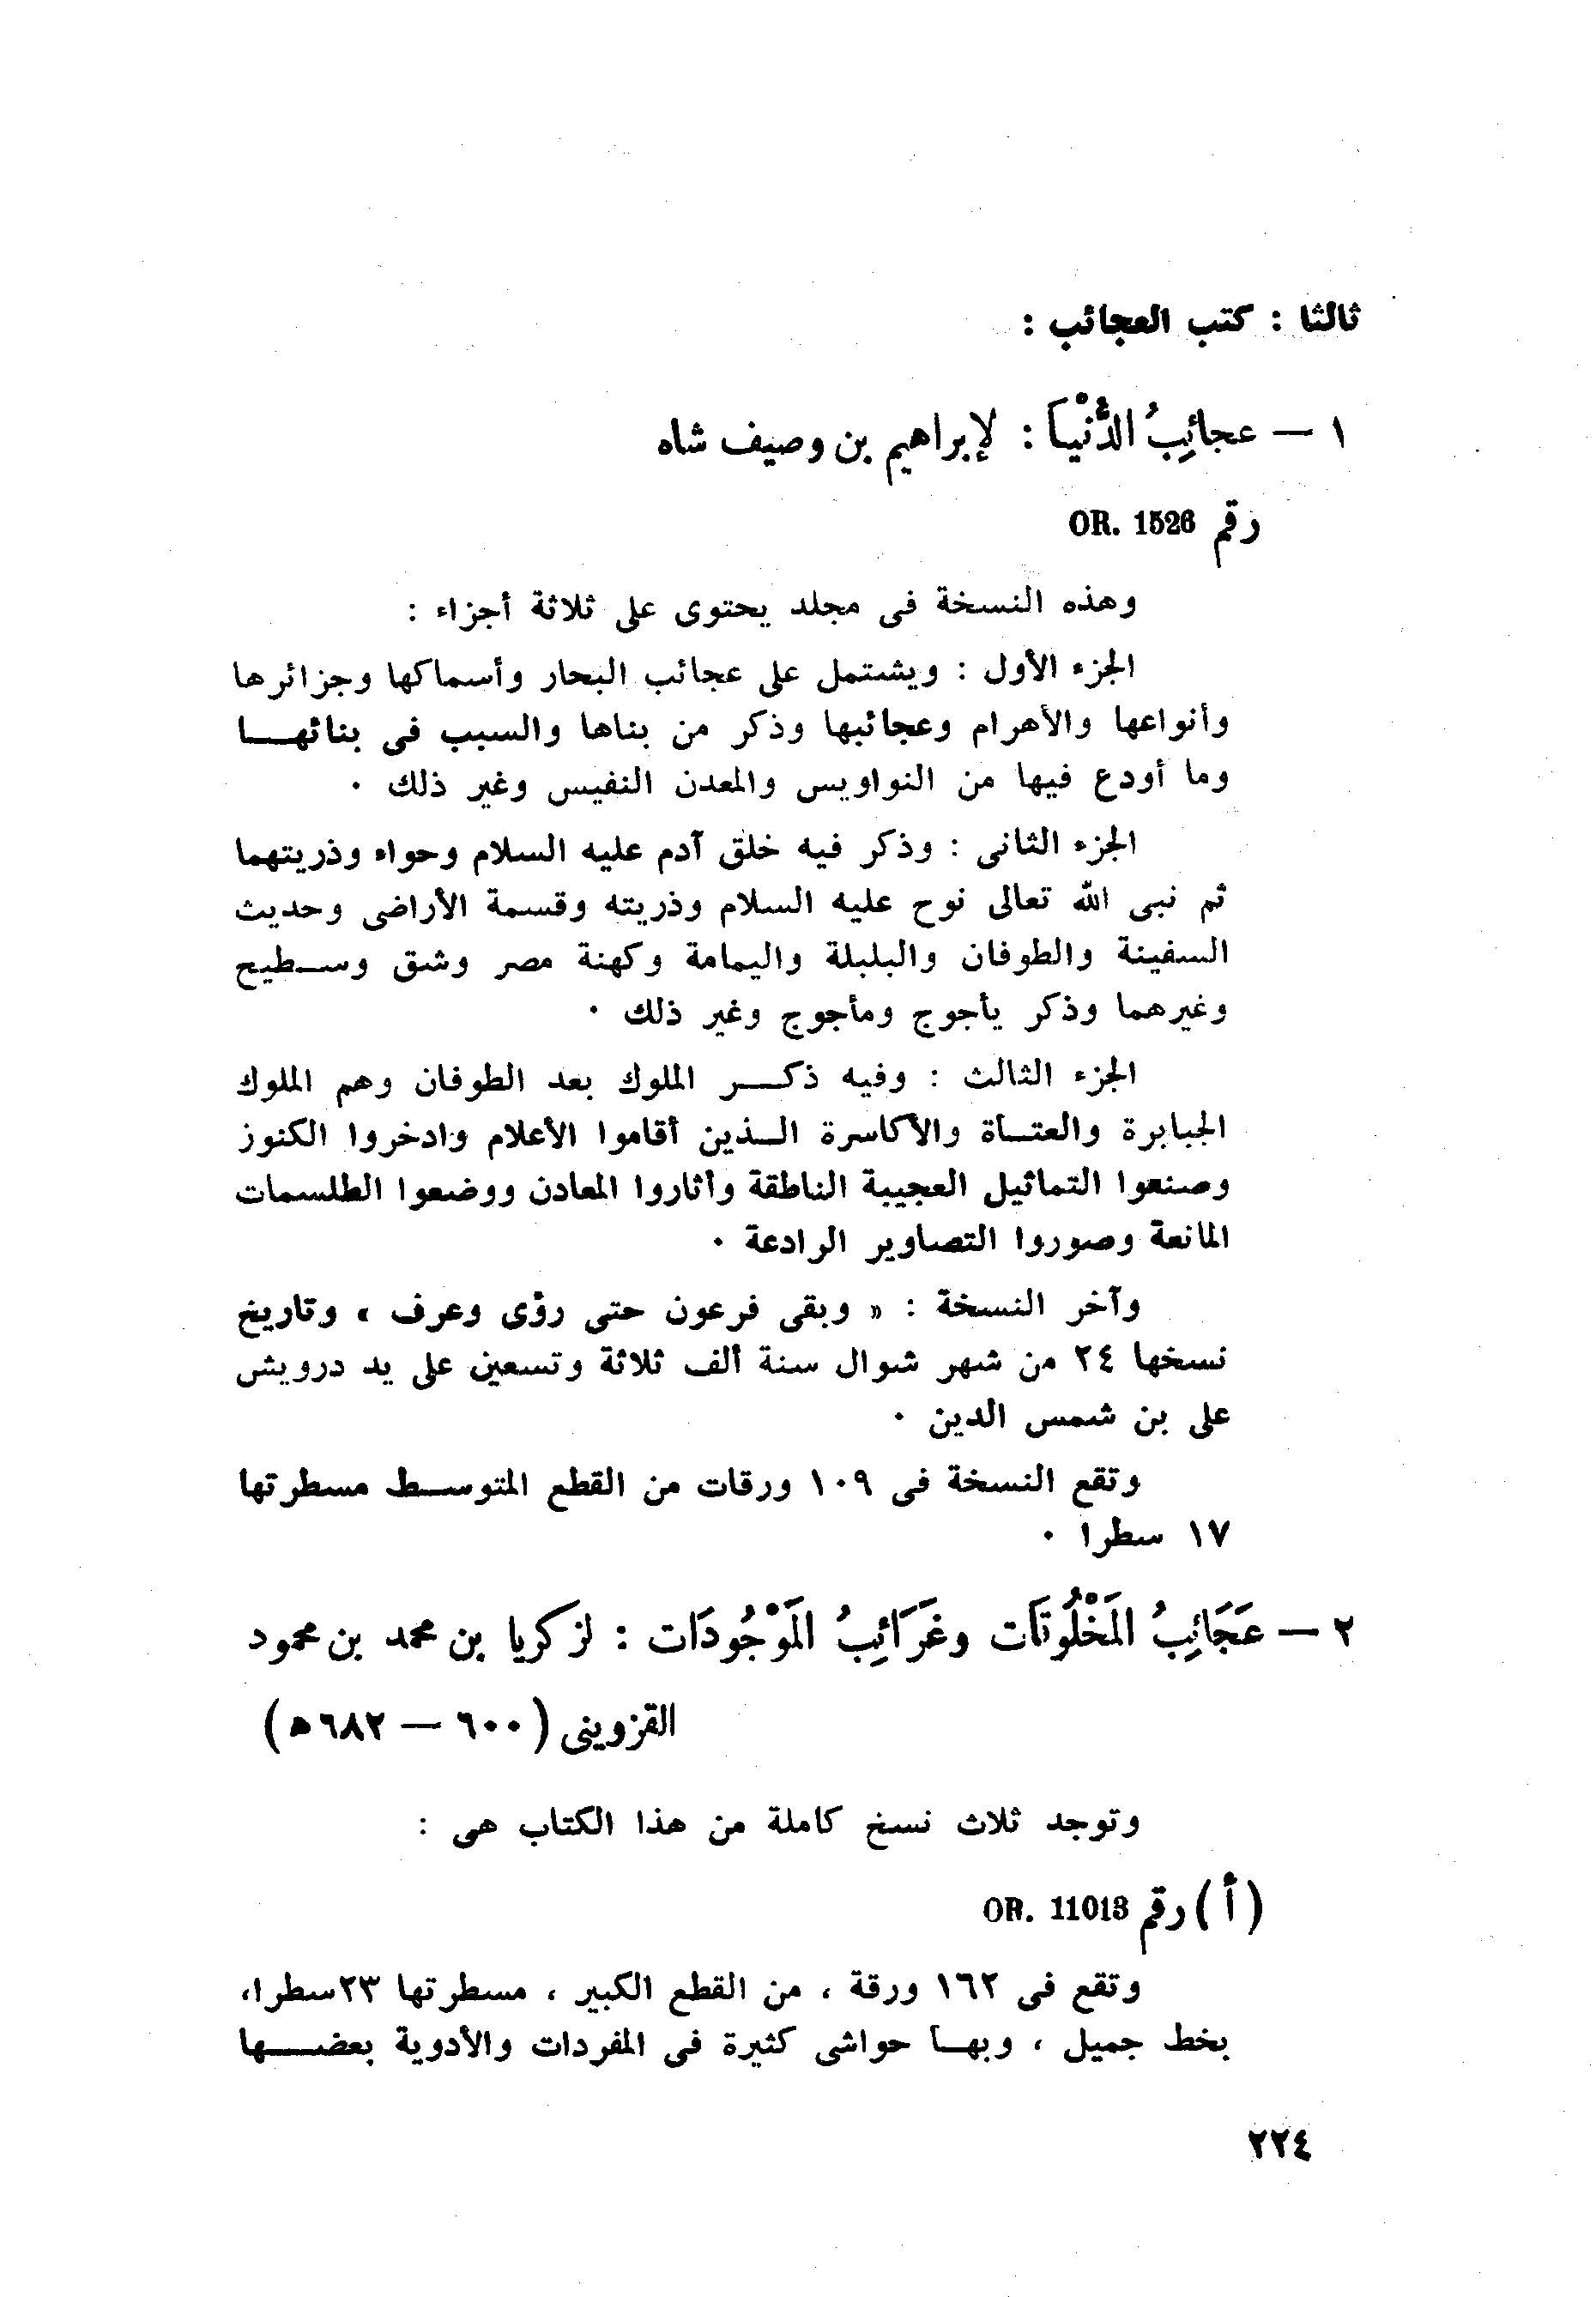 ثالثا : كتب العجائب :
١ — عجائِبُ الدُّنْيَا : لإبراهيم بن وصيف شاه
رقم OR. 1526
وهذه النسخة فى مجلد يحتوى على ثلاثة أجزاء :
الجزء الأول : ويشتمل على عجائب البحار وأسماكها وجزائرها
وأنواعها والأهرام وعجائبها وذكر من بناها والسبب فى بنائهـــا
وما أودع فيها من النواويس والمعدن النفيس وغير ذلك ٠
الجزء الثانى : وذكر فيه خلق آدم عليه السلام وحواء وذريتهما
ثم نبى الله تعالى نوح عليه السلام وذريته وقسمة الأراضى وحديث
السفينة والطوفان والبلبلة واليمامة وكهنة مصر وشق وســطيح
وغيرهما وذكر يأجوج ومأجوج وغير ذلك ٠
الجزء الثالث : وفيه ذكـــر الملوك بعد الطوفان وهم الملوك
الجبابرة والعتــاة والأكاسرة الــذين أقاموا الأعلام وادخروا الكنوز
وصنعوا التماثيل العجيبة الناطقة وأثاروا المعادن ووضعوا الطلسمات
المانعة وصوروا التصاوير الرادعة ٠
وآخر النسخة : « وبقى فرعون حتى رؤى وعرف » وتاريخ
نسخها ٢٤ من شهر شوال سنة ألف ثلاثة وتسعين على يد درويش
على بن شمس الدين ٠
وتقع النسخة فى ١٠٩ ورقات من القطع المتوســط مسطرتها
١٧ سطرا ٠
٢ — عَجَائِبُ المَخْلُوقَات وغَرَائِبُ المَوْجُودَات : لزكريا بن محمد بن محمود
القزوينى ( ٦٠٠ — ٦٨٢ه )
وتوجد ثلاث نسخ كاملة من هذا الكتاب هى :
( أ ) رقم OR. 11013
وتقع فى ١٦٢ ورقة ، من القطع الكبير ، مسطرتها ٢٣سطرا،
بخط جميل ، وبهــا حواشى كثيرة فى المفردات والأدوية بعضـــها
٢٢٤